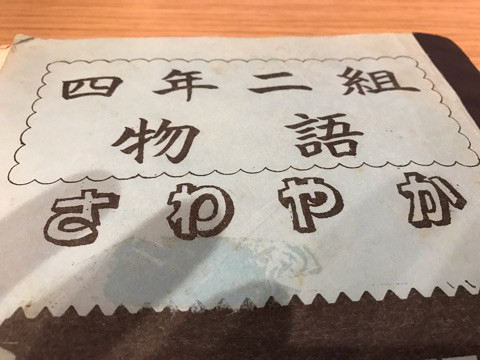 四年二組
物語
さわやか